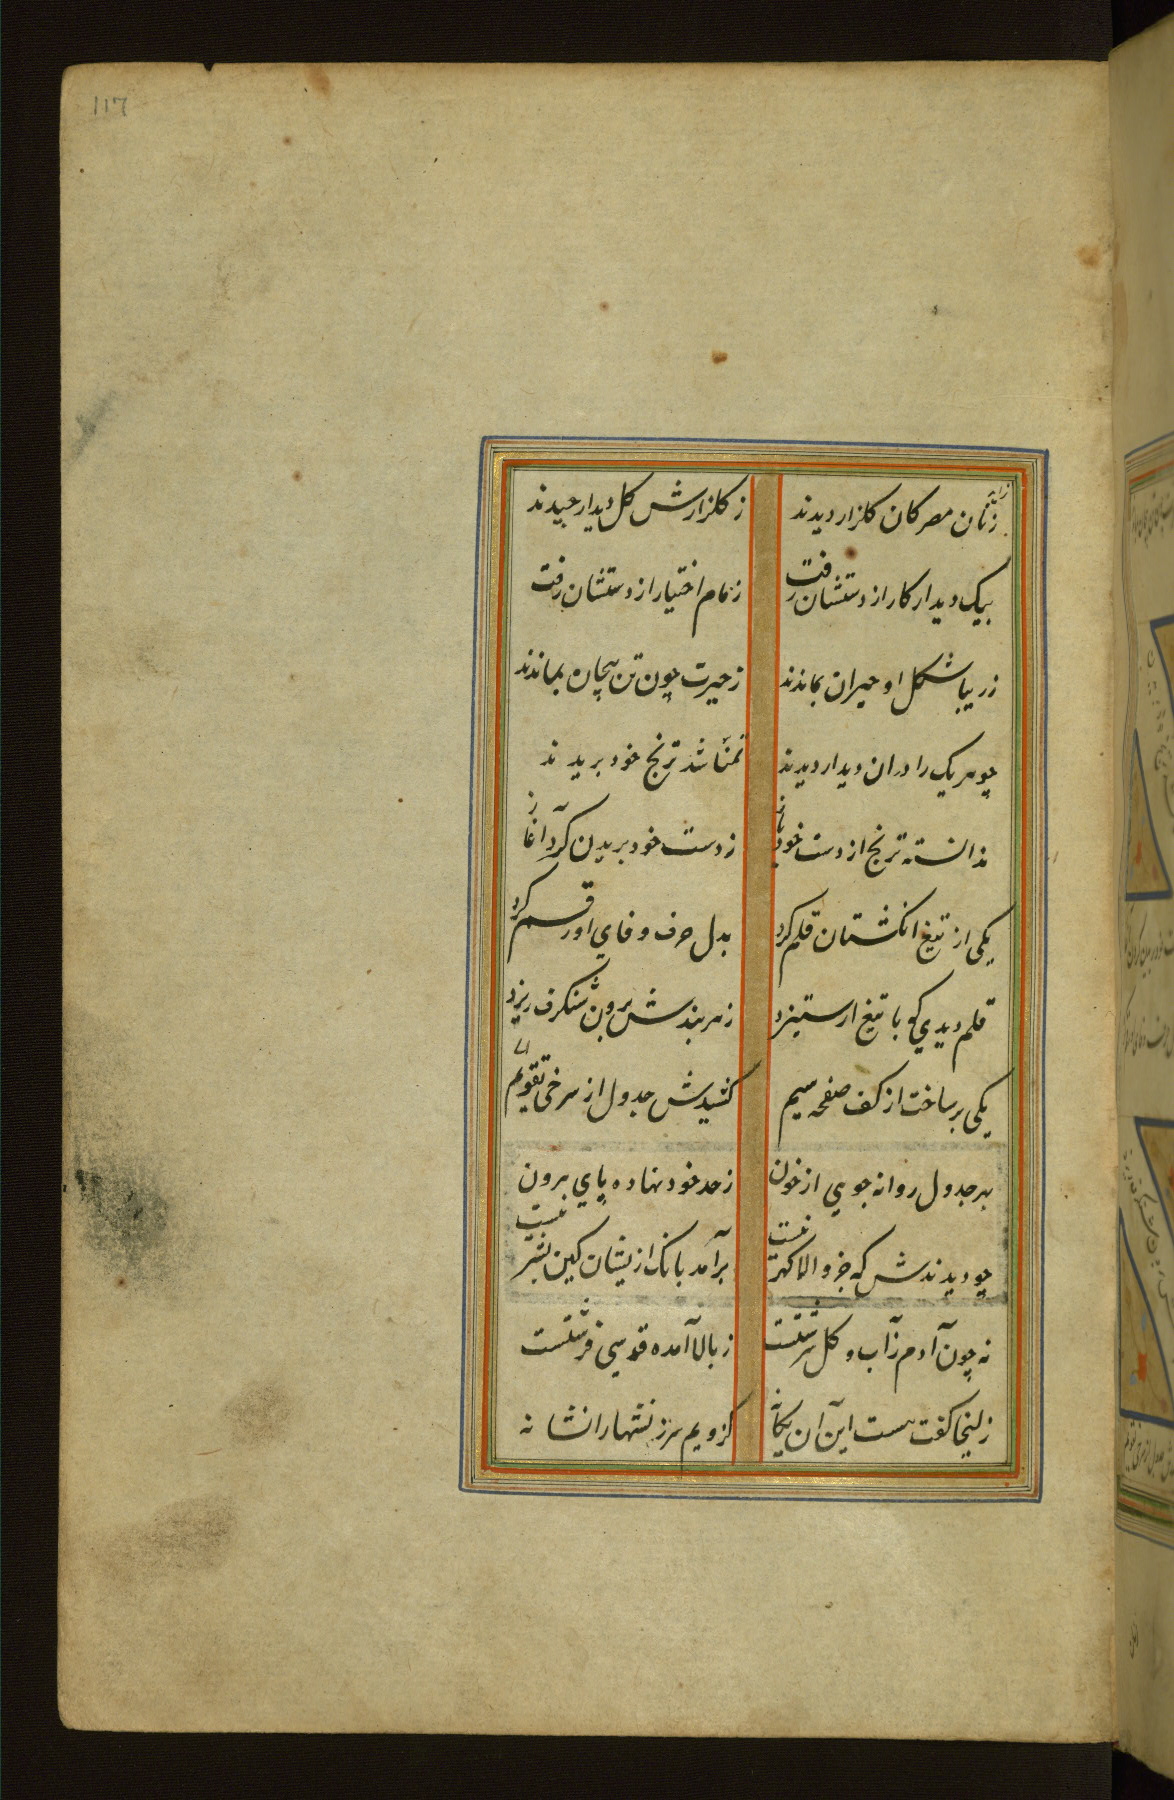 117
زنان مصر کان کلزار دیدند ز کلزارش کل دیدار چیدند
بیک دیدار کار از دستشان رفت زمام اختیار از دستشان رفت
ز زیبا شکل او حیران بماندند ز حیرت چون تن بیجان بماندند
چو هر یک را دران دیدار دیدند تمنا شد ترنج خود بریدند
ندانسته ترنج از دست خود باز ز دست خود بریدن کرد آغاز
یکی از تیغ انکشتان قلم کرد بدل حرف وفای او رقم کرد
قلم دیدی کو با تیغ ار ستیزد ز هر بندش برون شنکرف ریزد
یکی بر ساخت از کف صفحه سیم کشیدش جدول از سرخی تقویم
بهر جدول روانه جویی از خون ز حد خود نهاده پای برون
چو دیدندش که جز والا کهر نیست برآمد بانک ازیشان کین بشر نیست
نه چون آدم ز آب و کل سرشتست ز بالا آمده قدسی فرشتست
زلیخا کفت هست این آن یکانه کزویم سرزنشها را نشانه